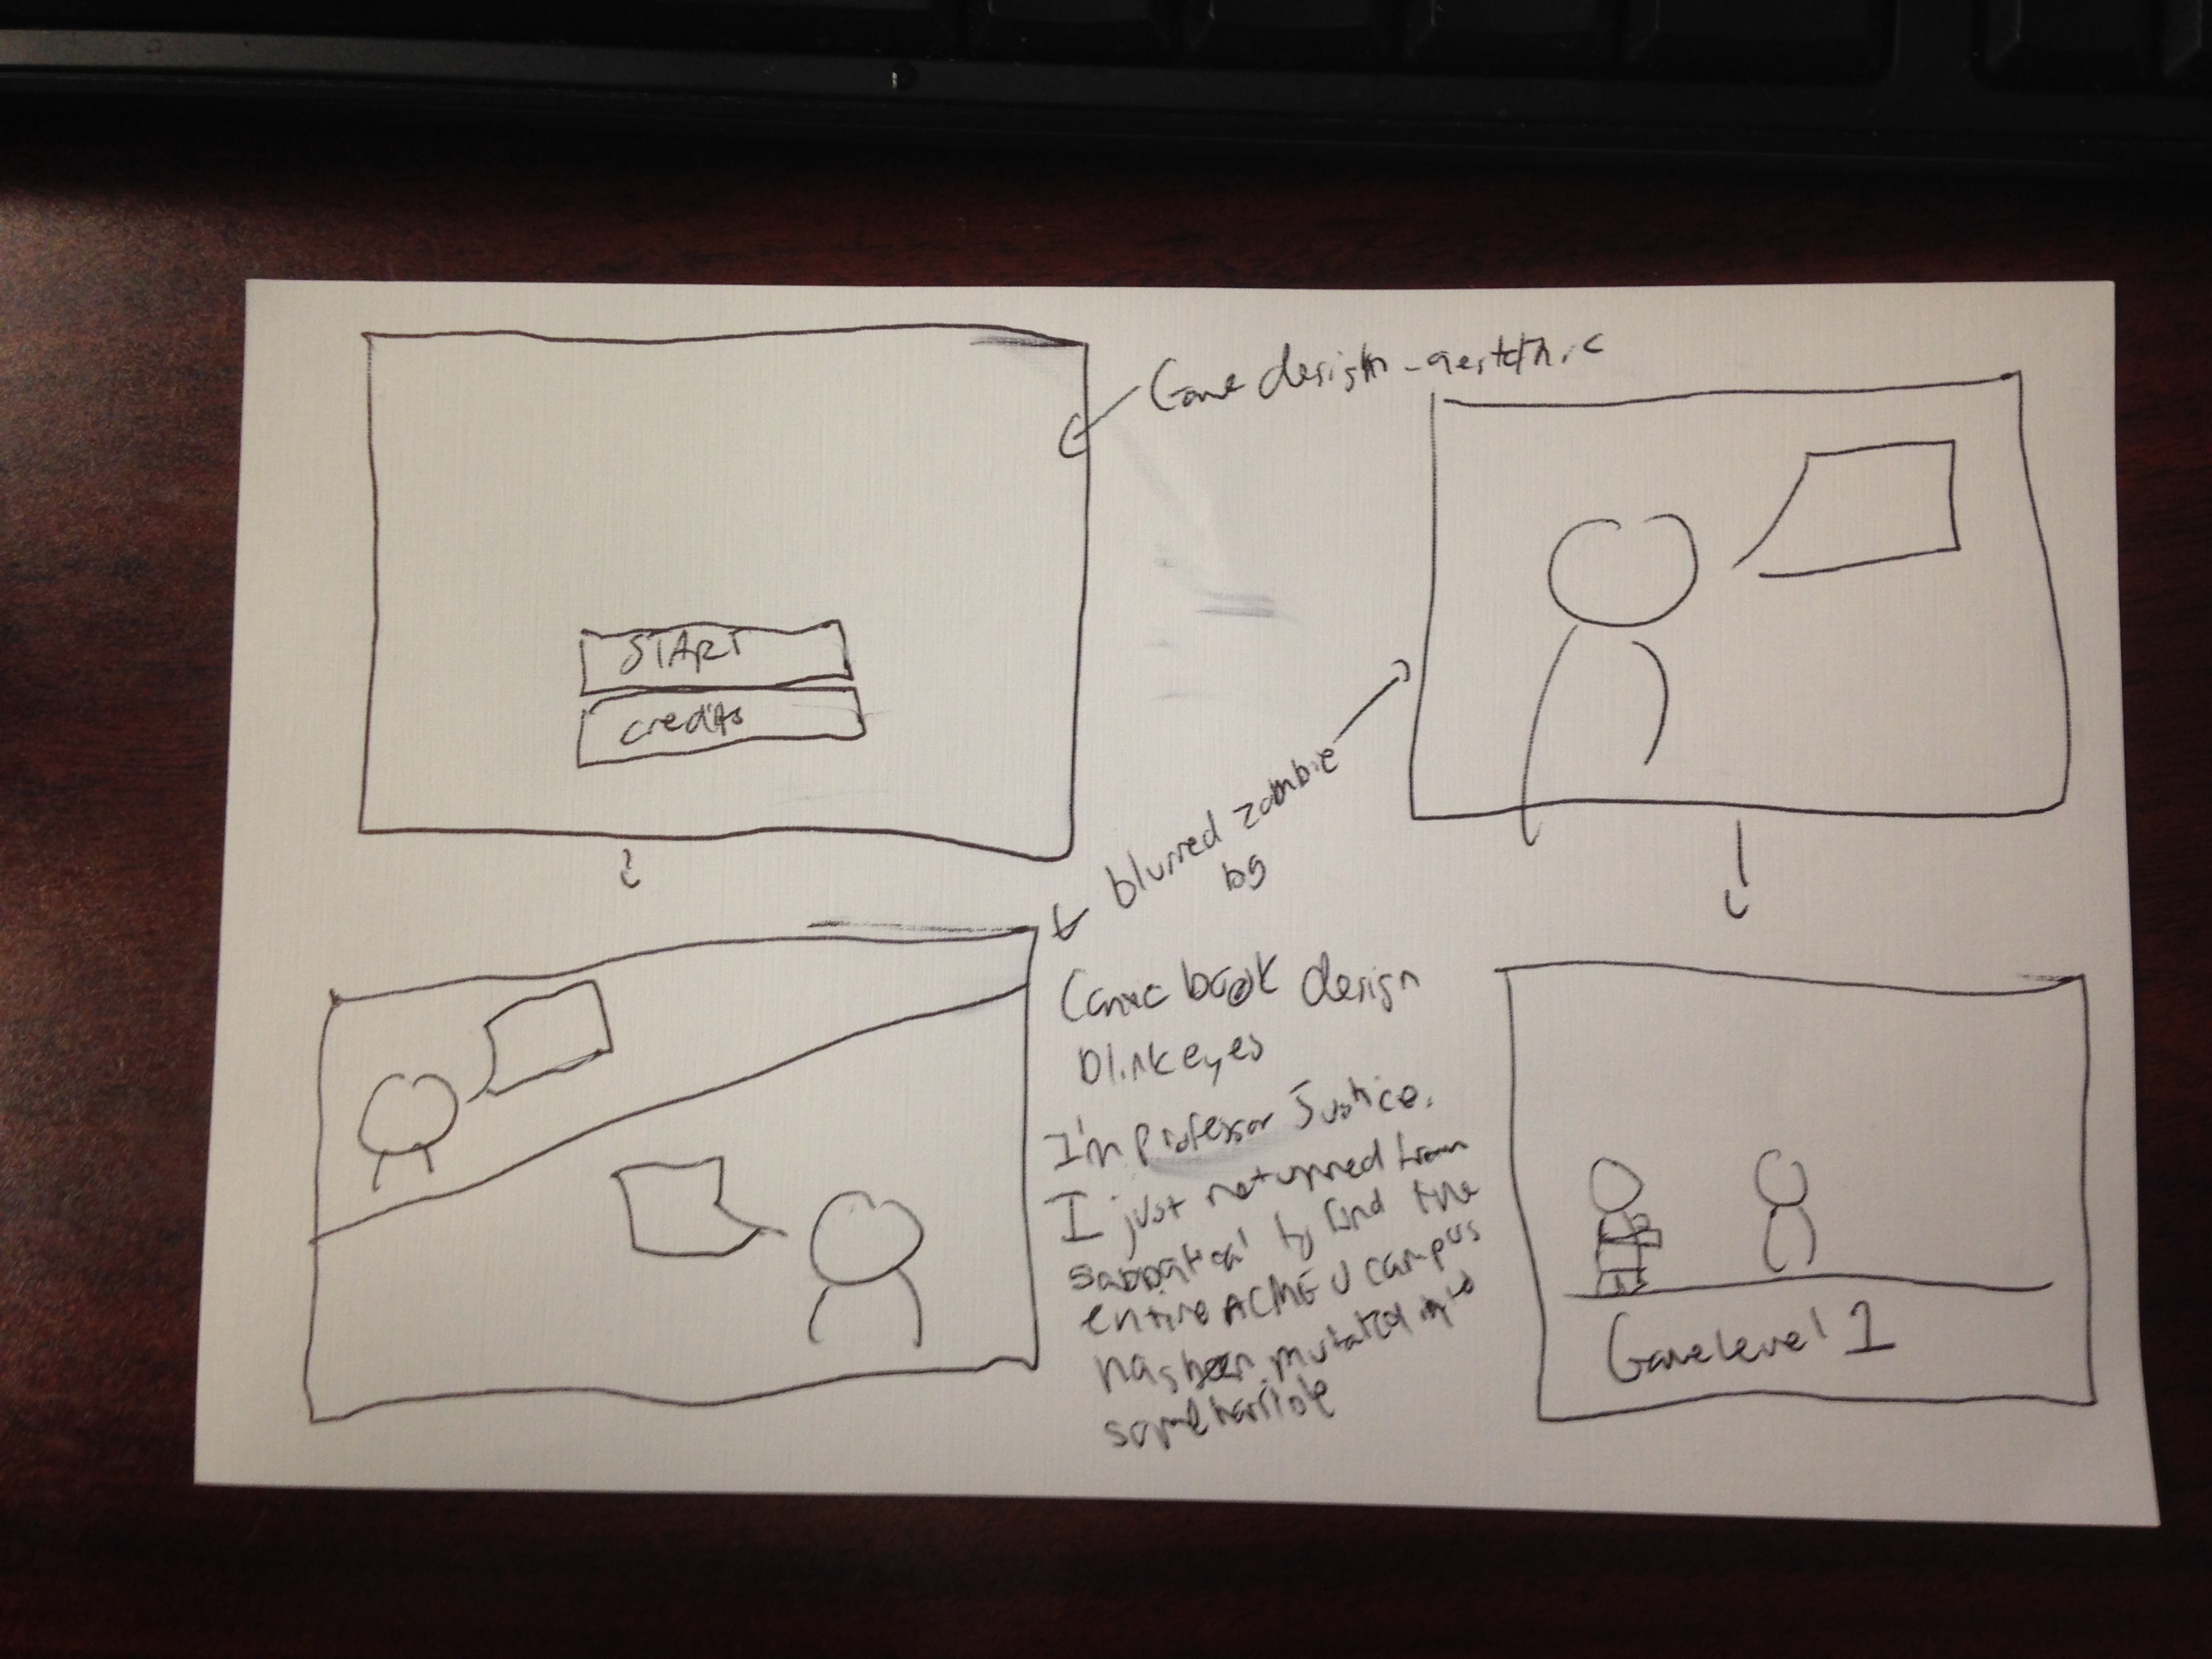 Game design - aestetic
START
credits
blurred zombie
bg
Comic book design
blink eyes
I'm Professor Justice.
I just returned from
sabbatical to find the
entire ACME U campus
has been mutated into
some horrible
Game level 1